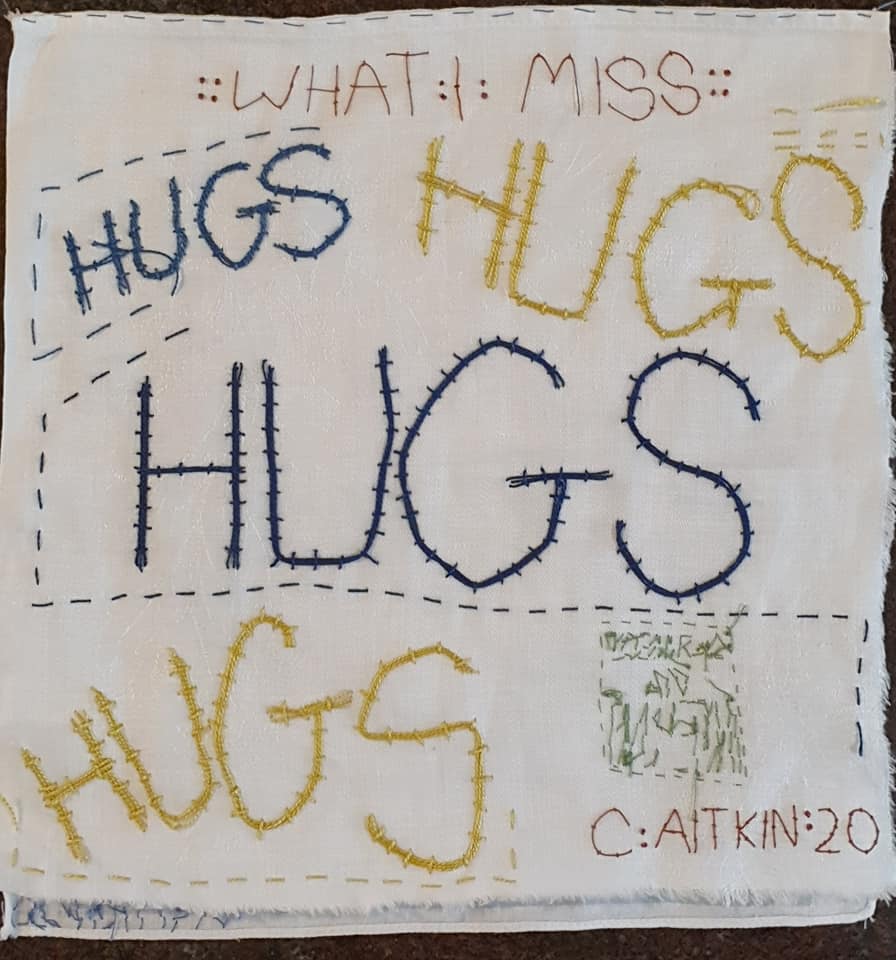 ::WHAT:I: MISS::
HUGS
HUGS
HUGS
HUGS
C:AITKIN:20